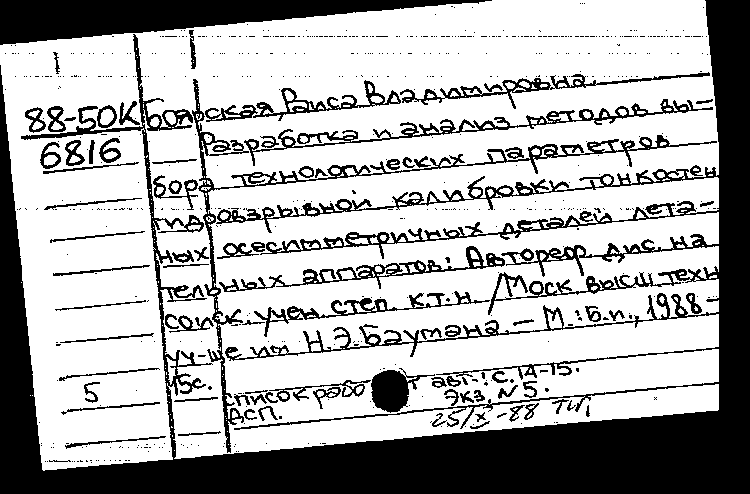 88-50К Боярская, Раиса Владимировна.
6816 Разработка и анализ методов вы-
бора технологических параметров
гидровзрывной калибровки тонкостен
ных осесимметричных деталей лета-
тельных аппаратов: Автореф. дис. на
соиск. учен. степ. к.т.н. /Моск. высш техн
уч-ще им Н.Э.Баумана. – М.:Б.и., 1988.-
5 15с. список рабо т авт.: с.14-15.
ДСП. Экз. N5.
25/X-88